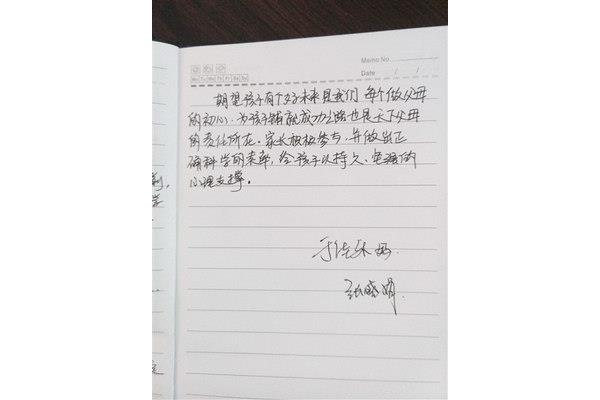 Memo No.
Mo Tu We Th Fr Sa Su
Date / /
期望孩子有个好未来是我们每个做父母
的初心,为孩子铺就成功之路也是天下父母
的责任所在。家长积极参与,并做出正
确科学的表率,给孩子以持久、坚强的
心理支撑。